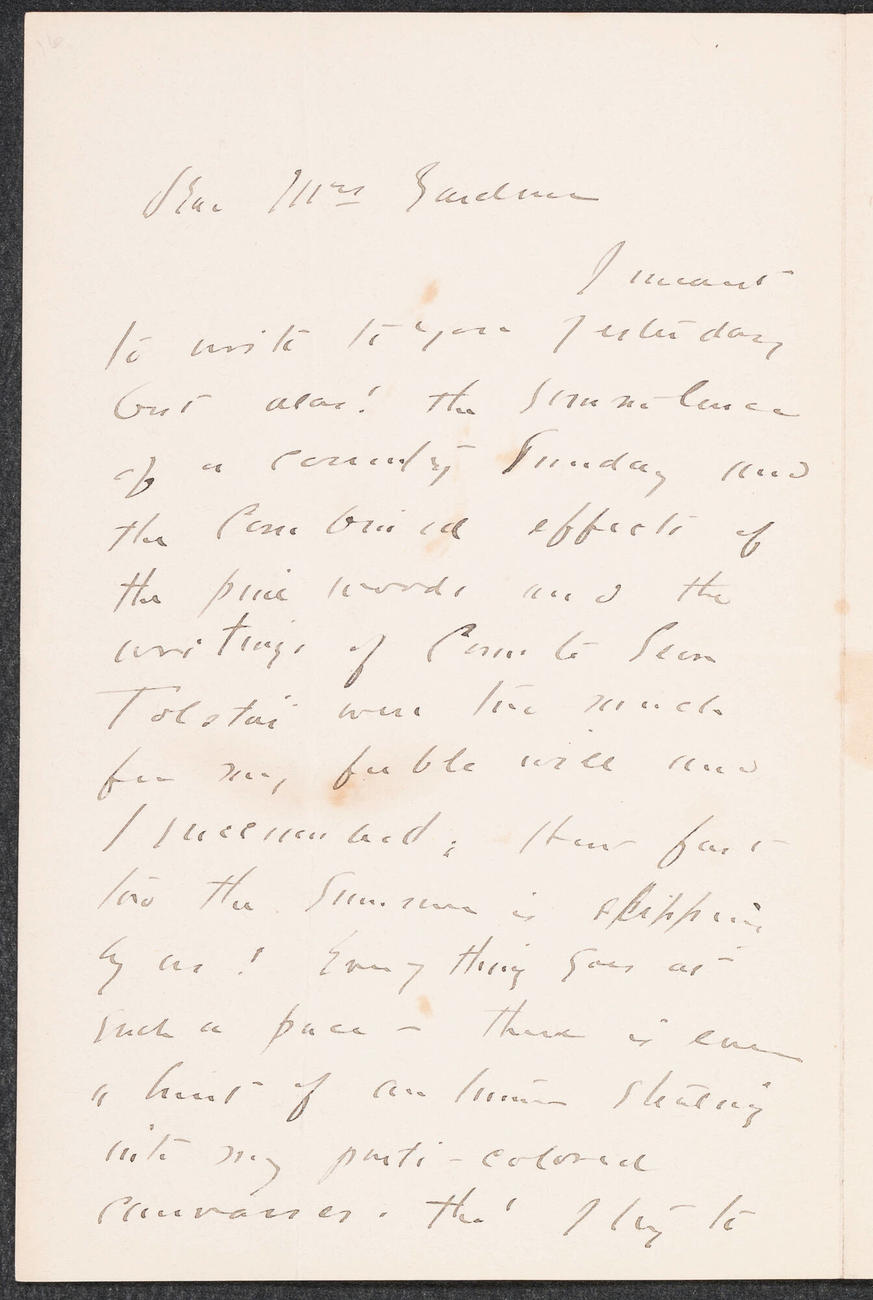 Dear Mrs Gardner
I meant
to write to you yesterday
but alas! the somnolence
of a country Sunday and
the combined effects of
the pine woods and the
writings of Comte Leon
Tolstoi were too much
for my feeble will and
I succumbed; How fast
too the Summer is slipping
by us! Every thing goes at
such a pace - there is even
a hint of autumn stealing
into my parti-colored
canvasses. tho' I try to